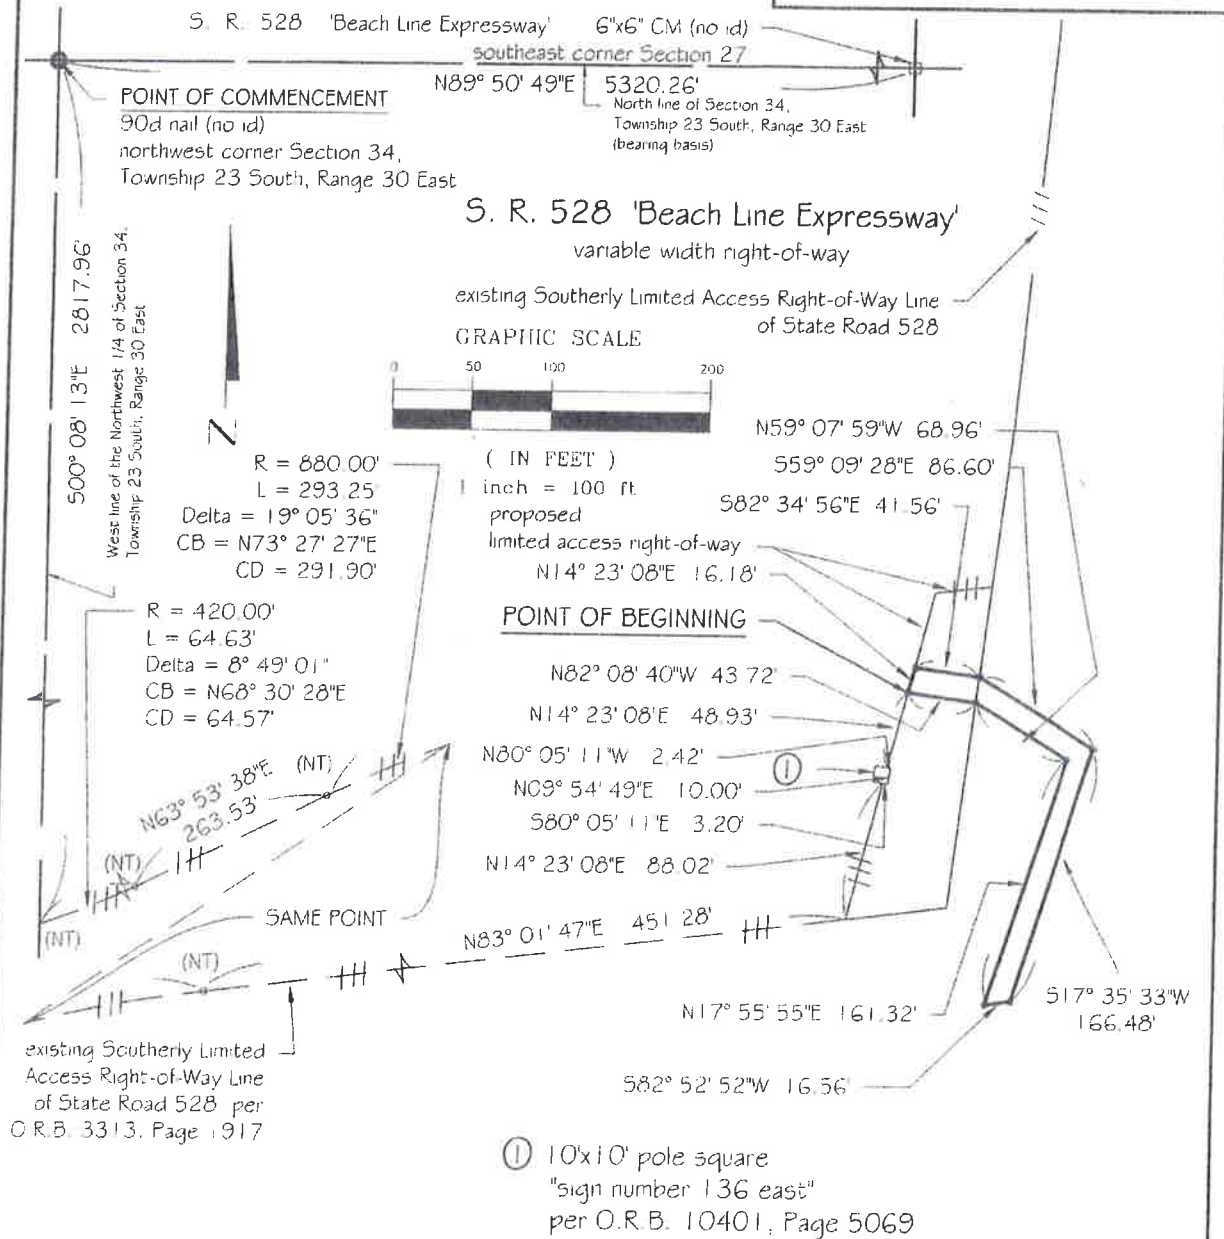 S. R. 528 'Beach Line Expressway'
6"x6" CM (no id)
southeast corner Section 27
N89° 50' 49"E 5320.26'
North line of Section 34,
Township 23 South, Range 30 East
(bearing basis)
POINT OF COMMENCEMENT
90d nail (no id)
northwest corner Section 34,
Township 23 South, Range 30 East
S. R. 528 'Beach Line Expressway'
variable width right-of-way
existing Southerly Limited Access Right-of-Way Line
of State Road 528
S00° 08' 13"E 2817.96'
West line of the Northwest 1/4 of Section 34,
Township 23 South, Range 30 East
N
GRAPHIC SCALE
0 50 100 200
( IN FEET )
1 inch = 100 ft.
R = 880.00'
L = 293.25'
Delta = 19° 05' 36"
CB = N73° 27' 27"E
CD = 291.90'
R = 420.00'
L = 64.63'
Delta = 8° 49' 01"
CB = N68° 30' 28"E
CD = 64.57'
N59° 07' 59"W 68.96'
S59° 09' 28"E 86.60'
S82° 34' 56"E 41.56'
proposed
limited access right-of-way
N14° 23' 08"E 16.18'
POINT OF BEGINNING
N82° 08' 40"W 43.72'
N14° 23' 08"E 48.93'
N80° 05' 11"W 2.42'
1
N09° 54' 49"E 10.00'
S80° 05' 11"E 3.20'
N14° 23' 08"E 88.02'
N63° 53' 38"E (NT)
263.53'
(NT)
(NT)
SAME POINT
N83° 01' 47"E 451.28'
(NT)
N17° 55' 55"E 161.32'
S17° 35' 33"W
166.48'
S82° 52' 52"W 16.56'
existing Southerly Limited
Access Right-of-Way Line
of State Road 528 per
O.R.B. 3313, Page 1917
1 10'x10' pole square
"sign number 136 east"
per O.R.B. 10401, Page 5069